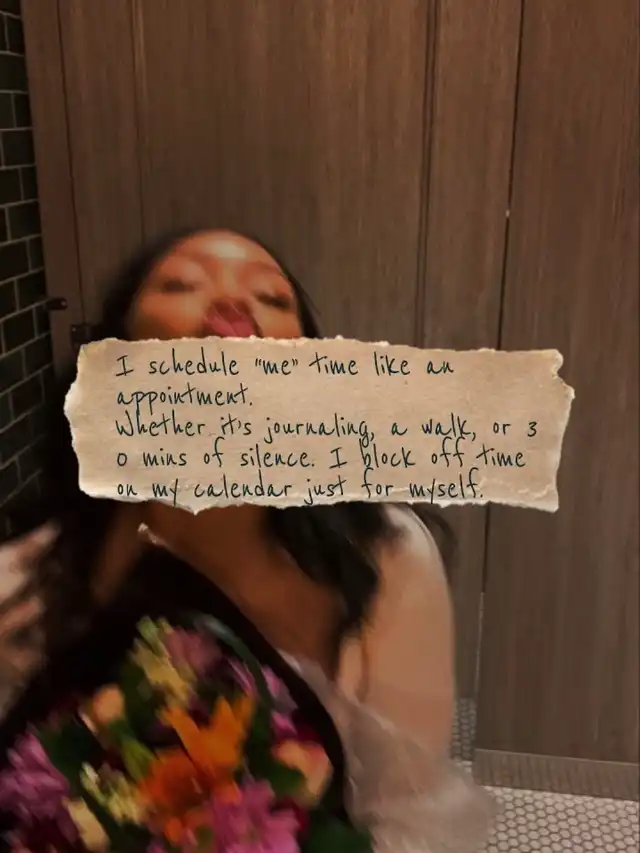 I schedule "me" time like an
appointment.
Whether it's journaling, a walk, or 3
0 mins of silence. I block off time
on my calendar just for myself.